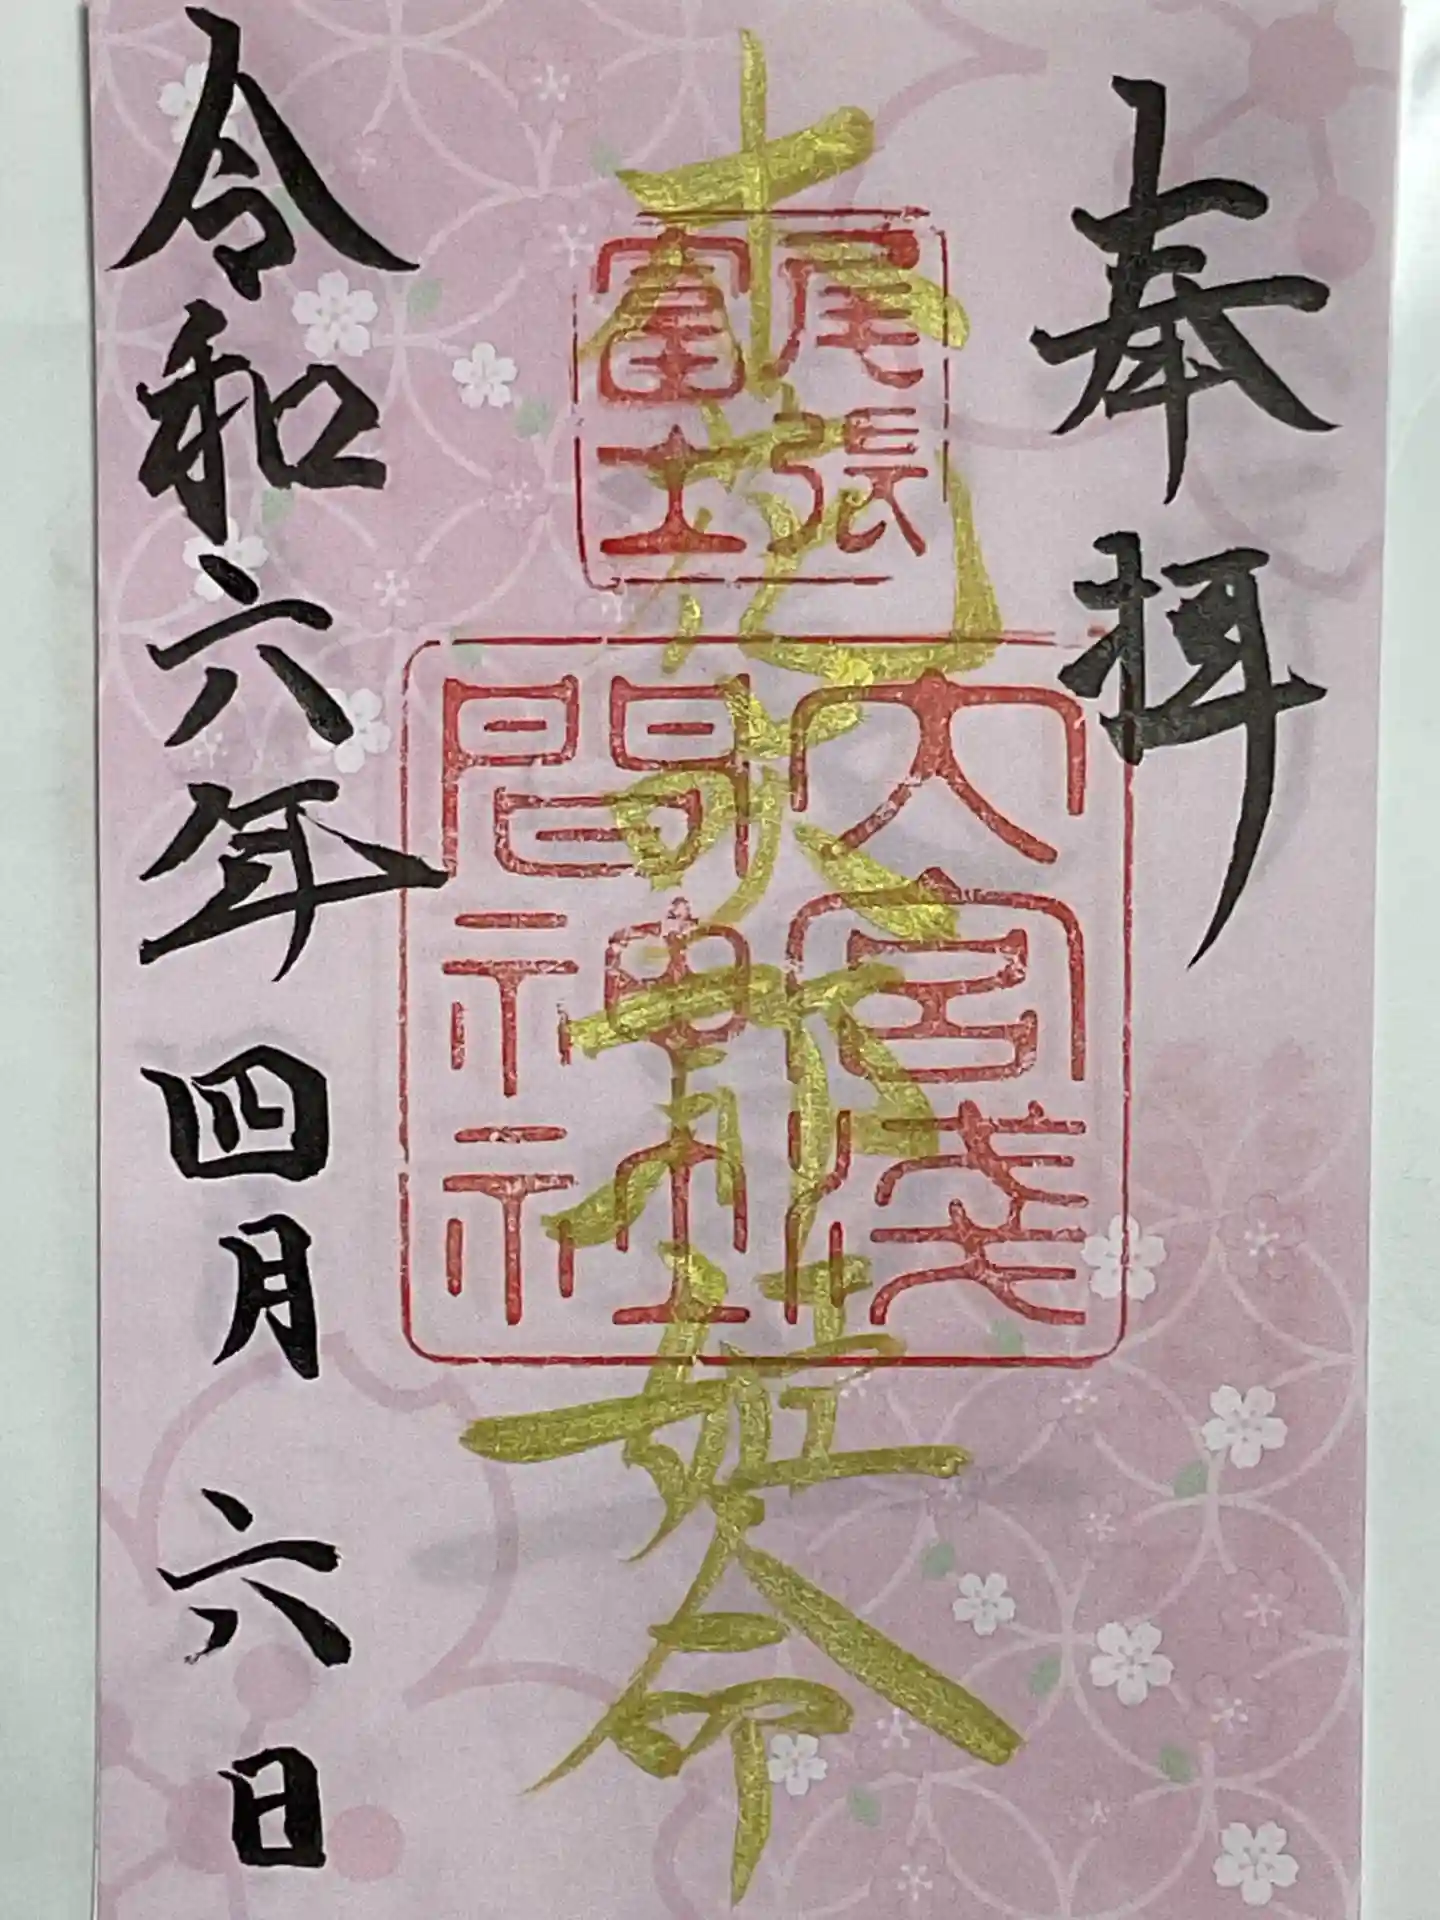 奉拝
木花咲耶姫命
尾張
富士
大宮淺
間神社
令和六年四月六日